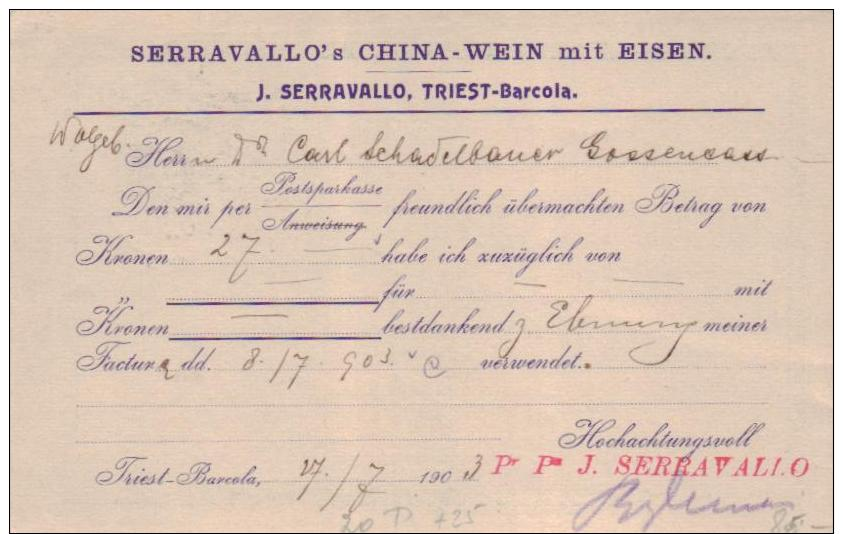 SERRAVALLO's CHINA-WEIN mit EISEN.
J. SERRAVALLO, TRIEST-Barcola.
Wolgeb. Herrn Dr Carl Schadelbauer Gossensass
Den mir per Postsparkasse
Anweisung freundlich übermachten Betrag von
Kronen 27 habe ich zuzüglich von
" für mit
Kronen bestdankend z meiner
Factura dd. 8./7. 903. verwendet.
Hochachtungsvoll
Triest-Barcola, 17/7 1903 Pr Pa J. SERRAVALLO
20 P +25 85.-